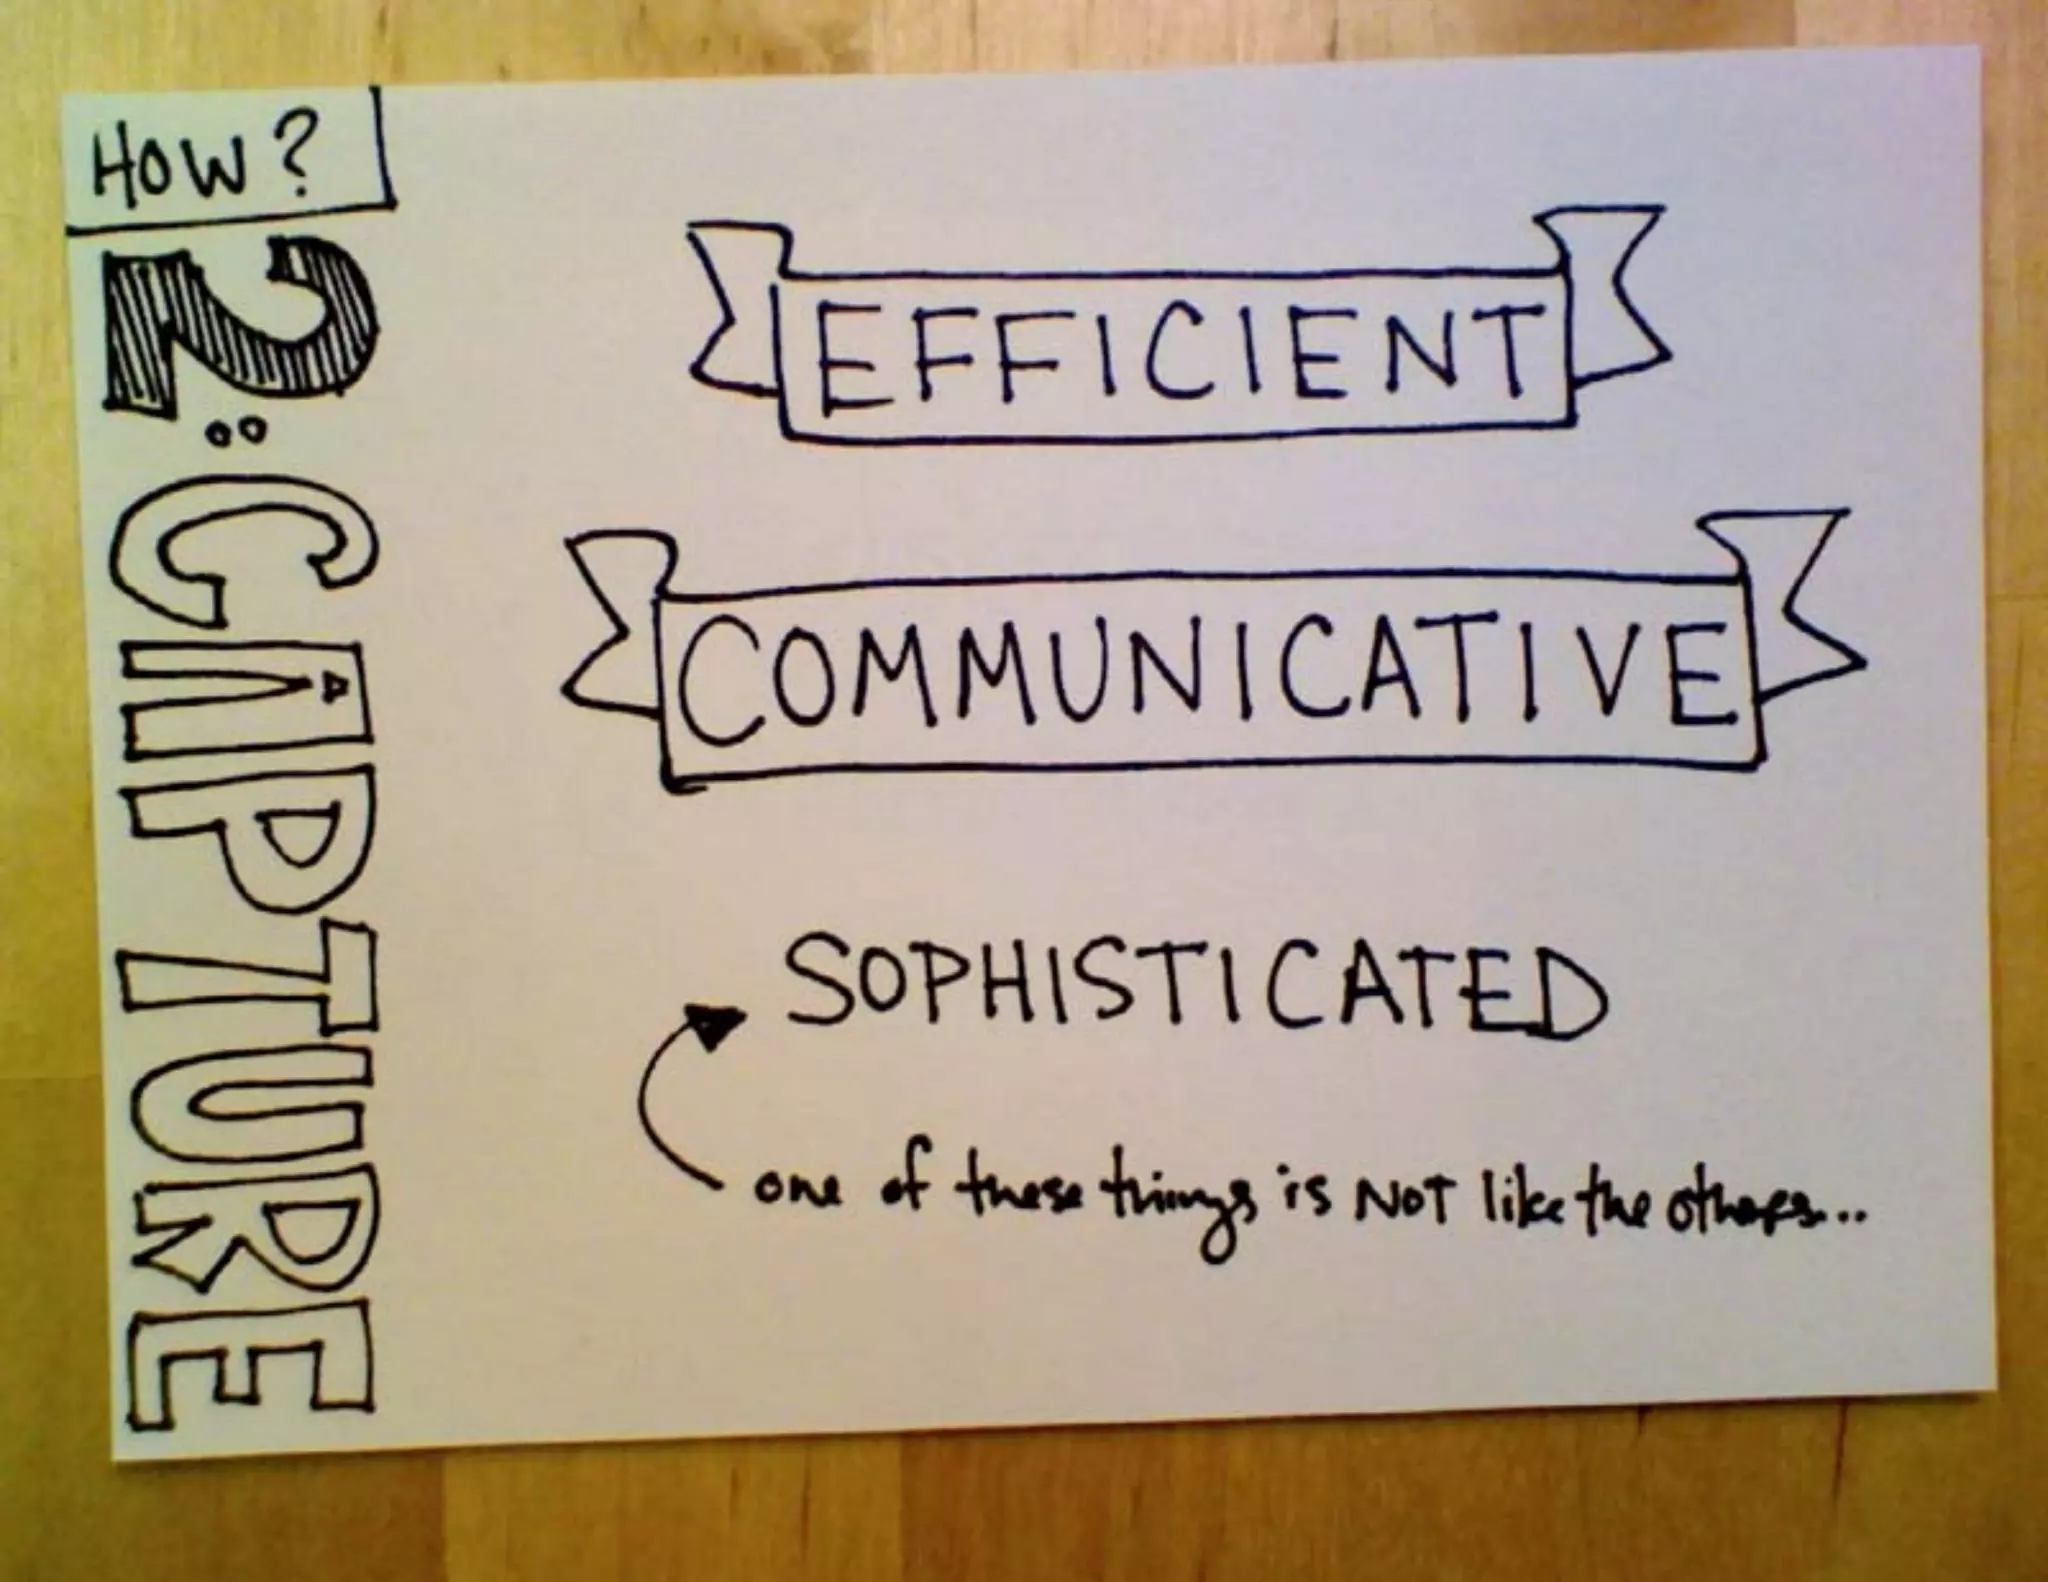 HOW?
2: CAPTURE
EFFICIENT
COMMUNICATIVE
SOPHISTICATED
one of these things is NOT like the others...